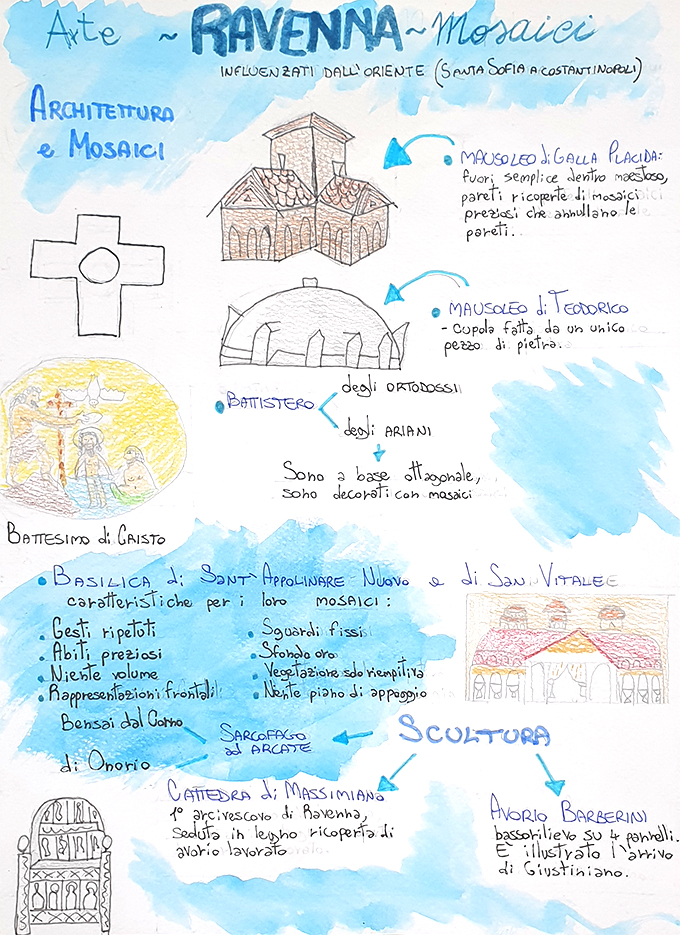 Arte ~ RAVENNA ~ Mosaici
INFLUENZATI DALL'ORIENTE (SANTA SOFIA A COSTANTINOPOLI)
ARCHITETTURA
e MOSAICI
MAUSOLEO di GALLA PLACIDA:
fuori semplice dentro maestoso,
pareti ricoperte di mosaici
preziosi che annullano le
pareti..
MAUSOLEO di TEODORICO
- Cupola fatta da un unico
pezzo di pietra.
BATTISTERO
degli ORTODOSSI
degli ARIANI
Sono a base ottagonale,
sono decorati con mosaici
BATTESIMO di CRISTO
BASILICA di SANT'APPOLINARE NUOVO e di SAN VITALE
caratteristiche per i loro MOSAICI:
Gesti ripetoti
Abiti preziosi
Niente volume
Rappresentazioni frontali
Sguardi fissi
Sfondo oro
Vegetazione solo riempitiva
Niente piano di appoggio
Bensai dal Corno
di Onorio
SARCOFAGO
ad ARCATE
SCULTURA
CATTEDRA di MASSIMIANO
1° arcivescovo di Ravenna,
seduta in legno ricoperta di
avorio lavorato
AVORIO BARBERINI
bassorilievo su 4 pannelli.
E' illustrato l'arrivo
di Giustiniano.